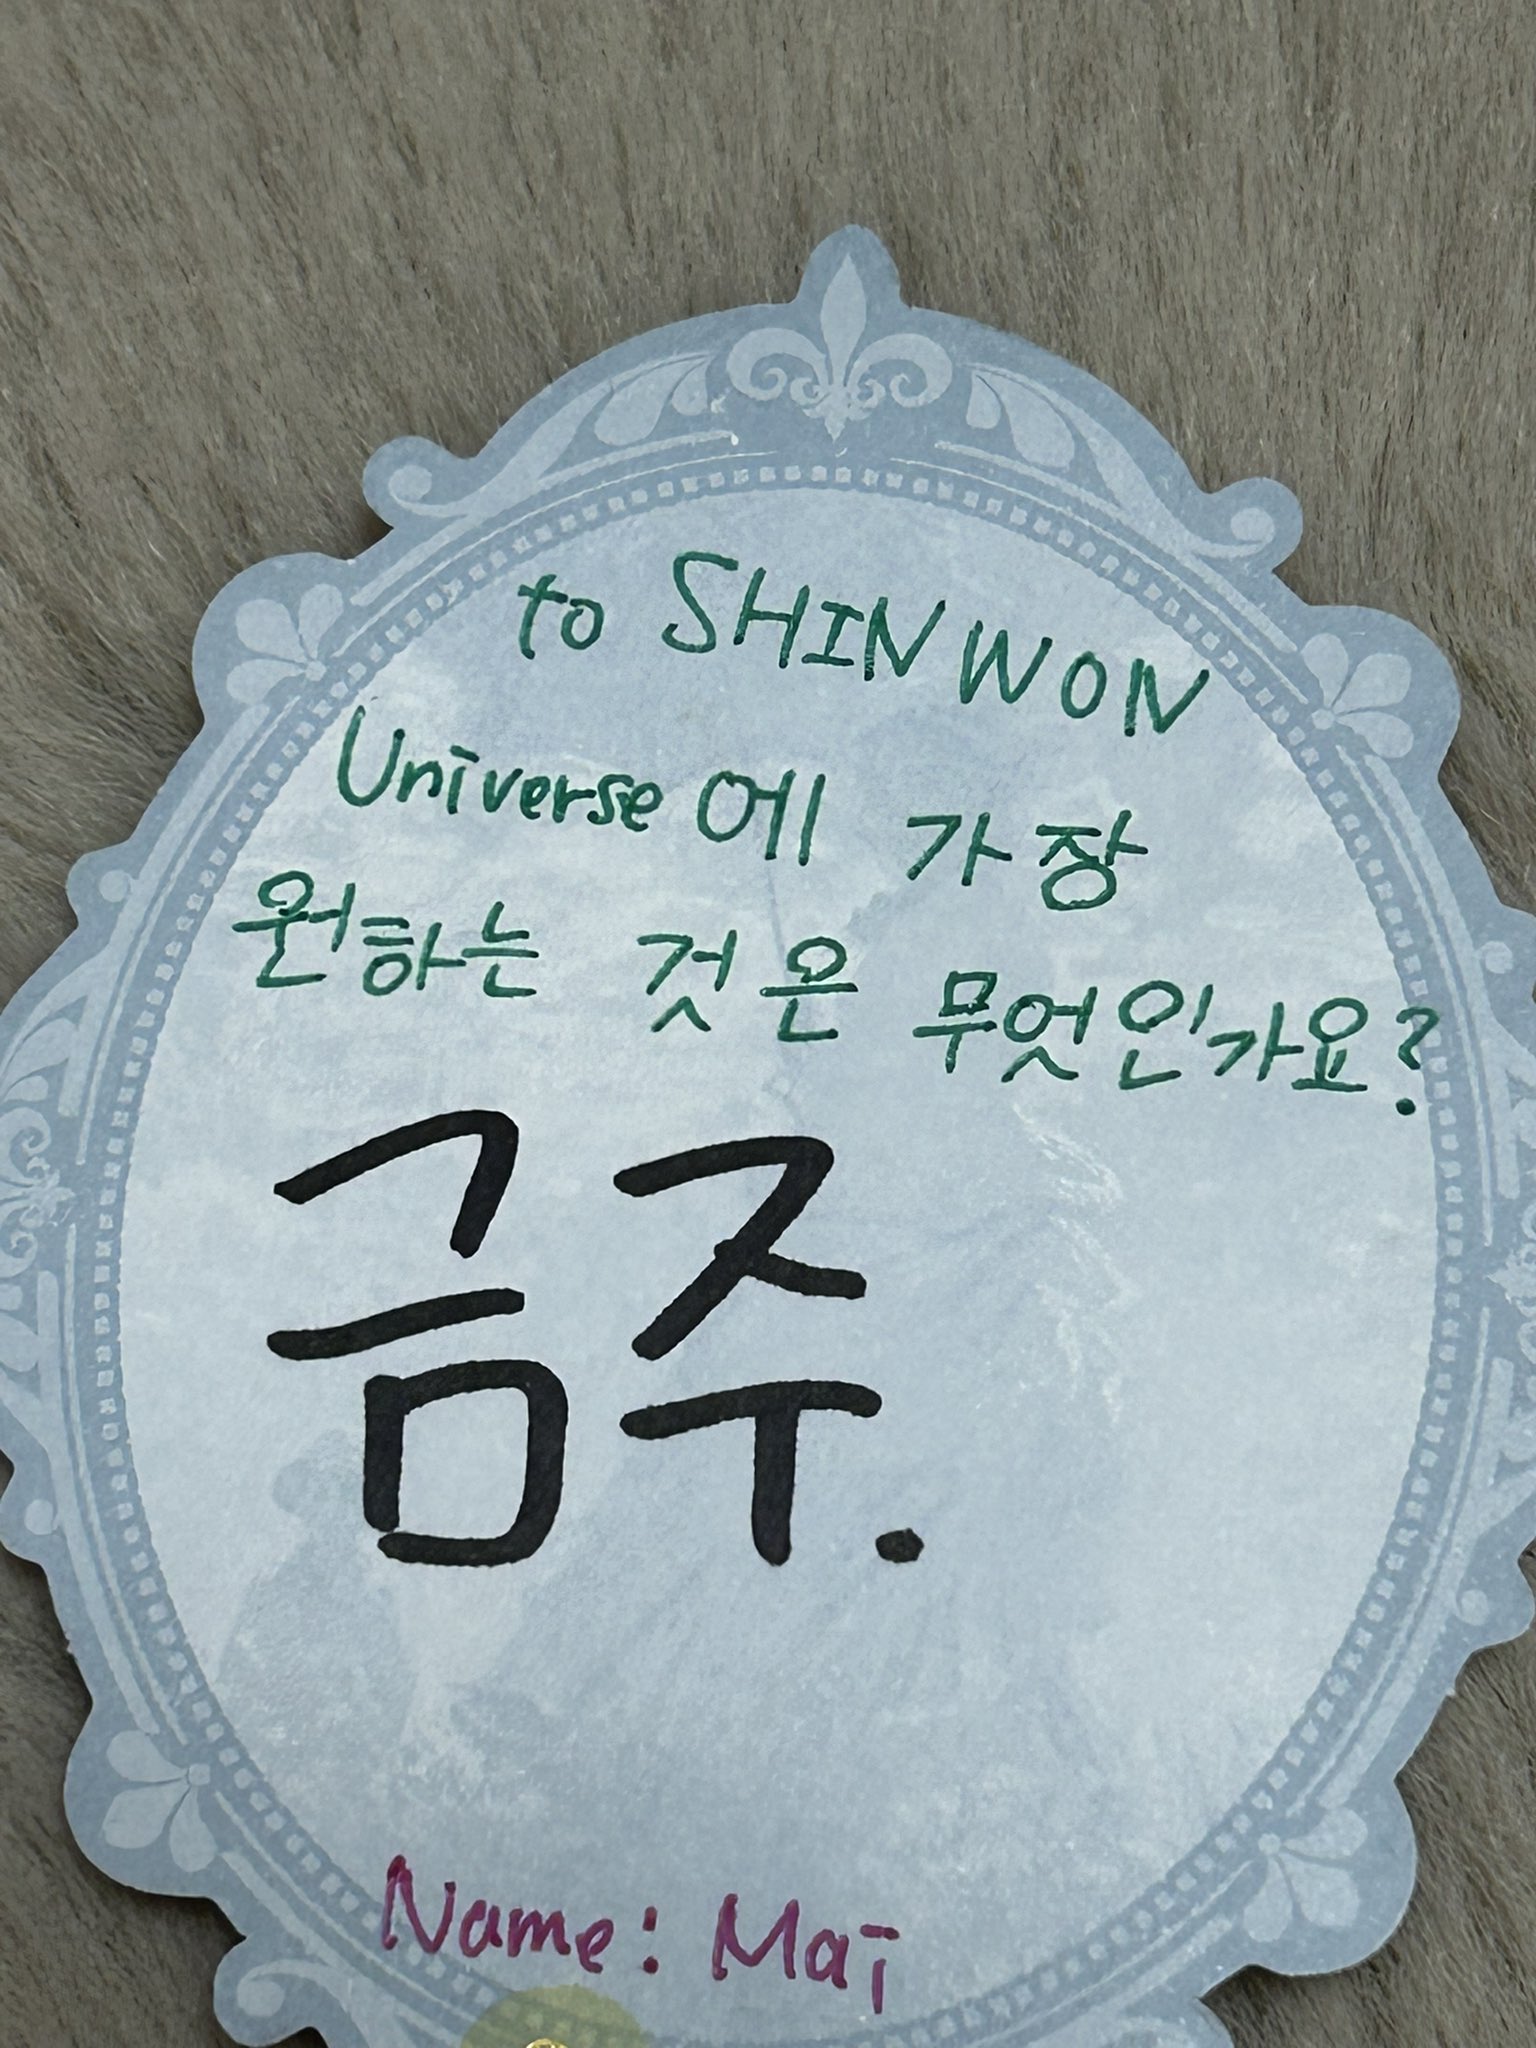 to SHINWON
Universe에 가장
원하는 것은 무엇인가요?
금주.
Name: Mai